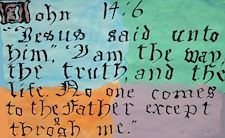 John 14:6
"Jesus said unto
him, "I am the way,
the truth and the
life. No one comes
to the Father except
throgh me."